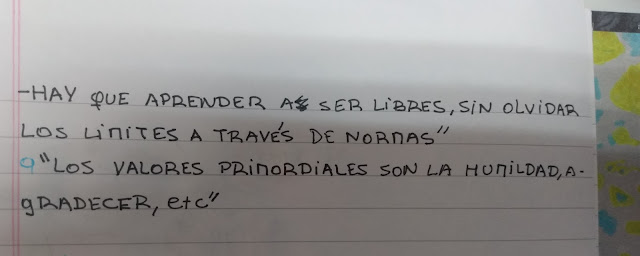 -HAY QUE APRENDER A SER LIBRES, SIN OLVIDAR
LOS LIMITES A TRAVÉS DE NORMAS"
9 "LOS VALORES PRIMORDIALES SON LA HUMILDAD, A-
gRADECER, etc"